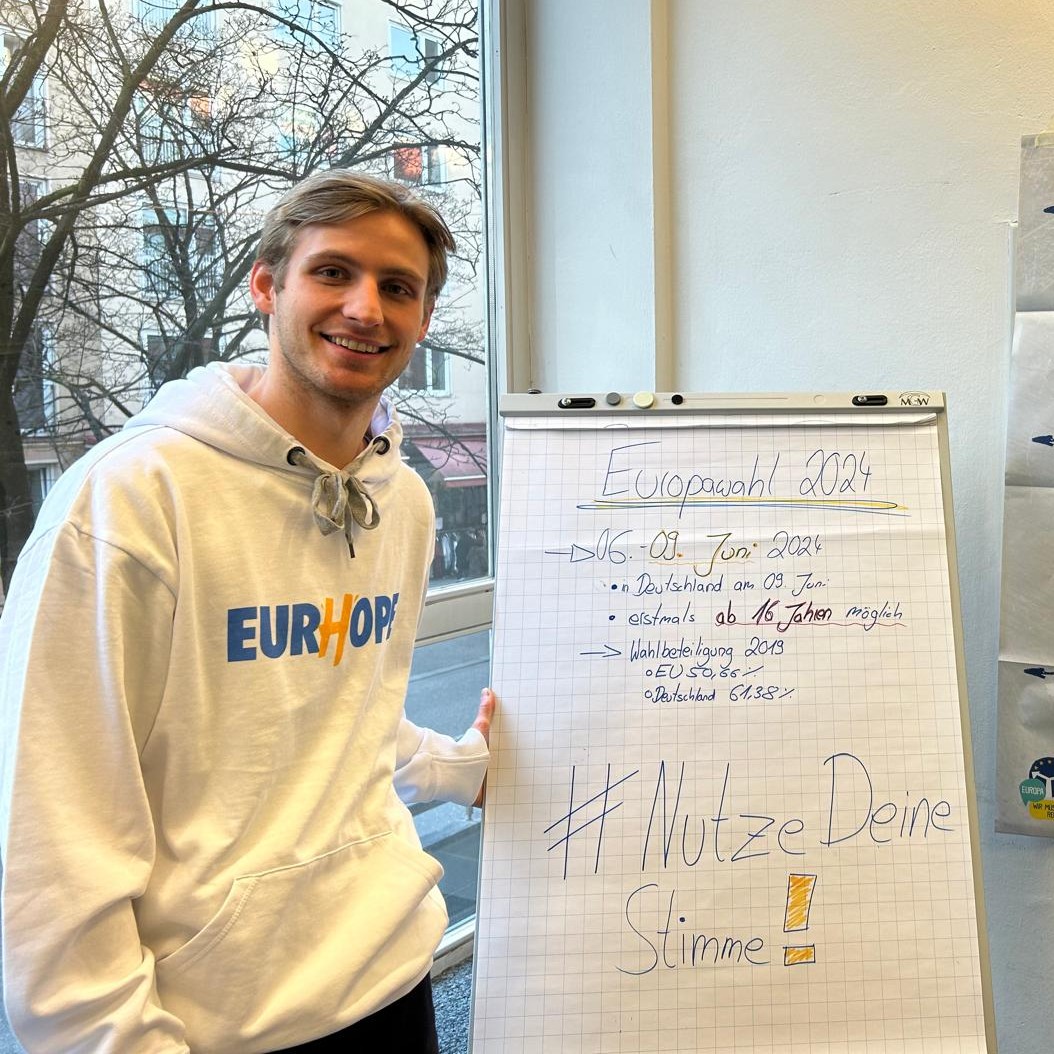 EURHOPE
MGW
Europawahl 2024
06.-09. Juni 2024
• in Deutschland am 09. Juni
• erstmals ab 16 Jahren möglich
Wahlbeteiligung 2019
EU 50,66 %
Deutschland 61,38 %
#Nutze Deine
Stimme!
EUROPA